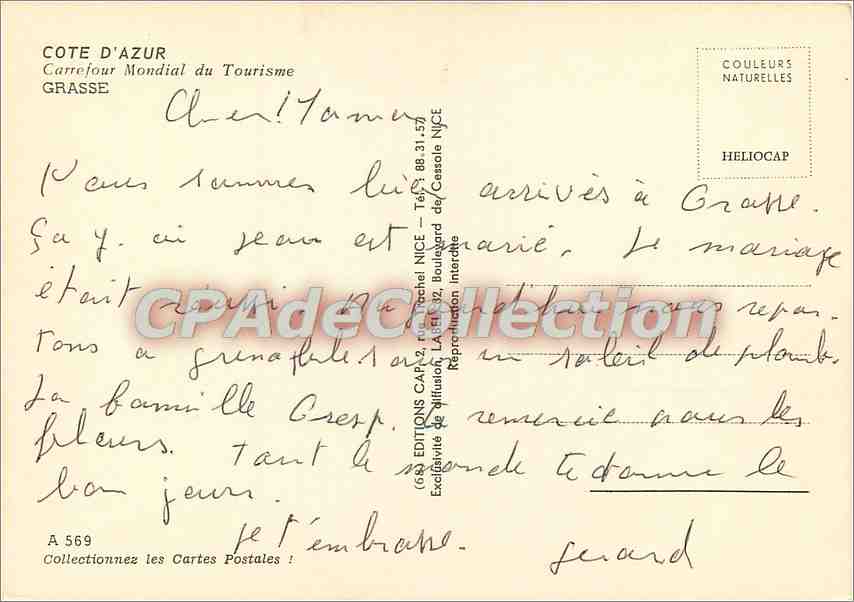 COTE D'AZUR
Carrefour Mondial du Tourisme
GRASSE
COULEURS
NATURELLES
HELIOCAP
Nous sommes bien arrivés à Grasse.
Ça y. ai jean est marié. Le mariage
était réussi. Aujourd'hui nous repar-
tons a grenoble sous un soleil de plomb.
La famille Cresp. te remercie pour les
fleurs. Tout le monde te donne le
bon jour.
je t'embrasse.
gerard
A 569
Collectionnez les Cartes Postales !
(68) EDITIONS CAP - 2, rue Rachel NICE — Tél. : 88.31.57
Exclusivité de diffusion, LABEL - 32, Boulevard de Cessole NICE
Reproduction Interdite
CPAdeCollection